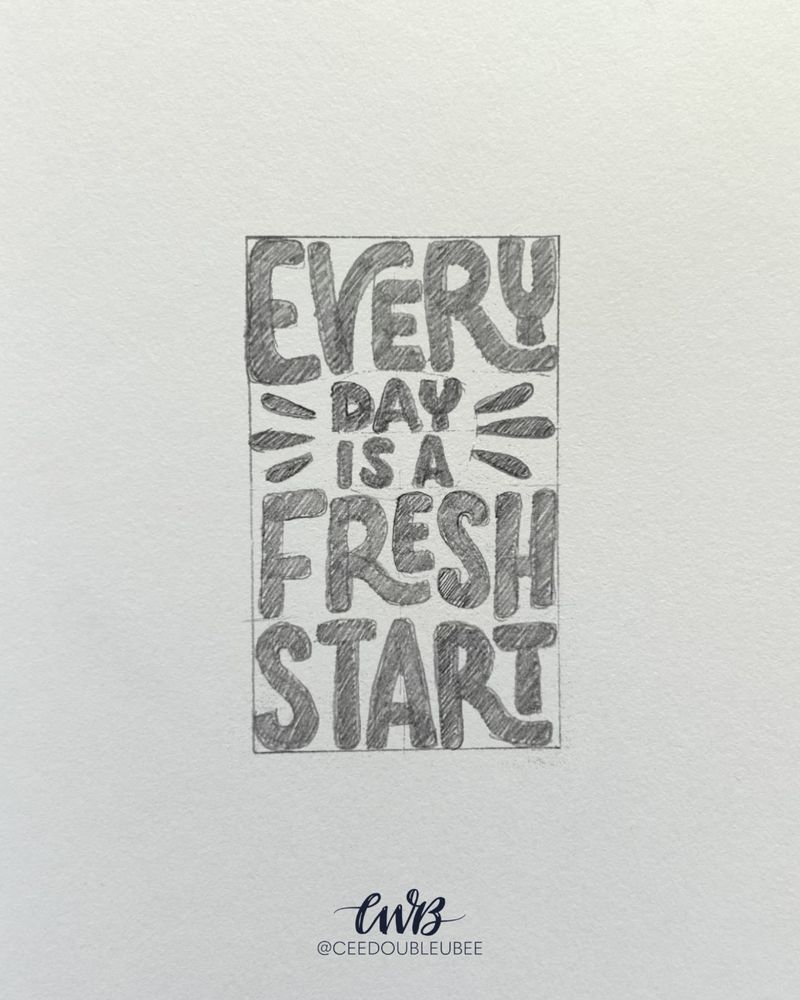 EVERY
DAY
IS A
FRESH
START
CWB
@CEEDOUBLEUBEE